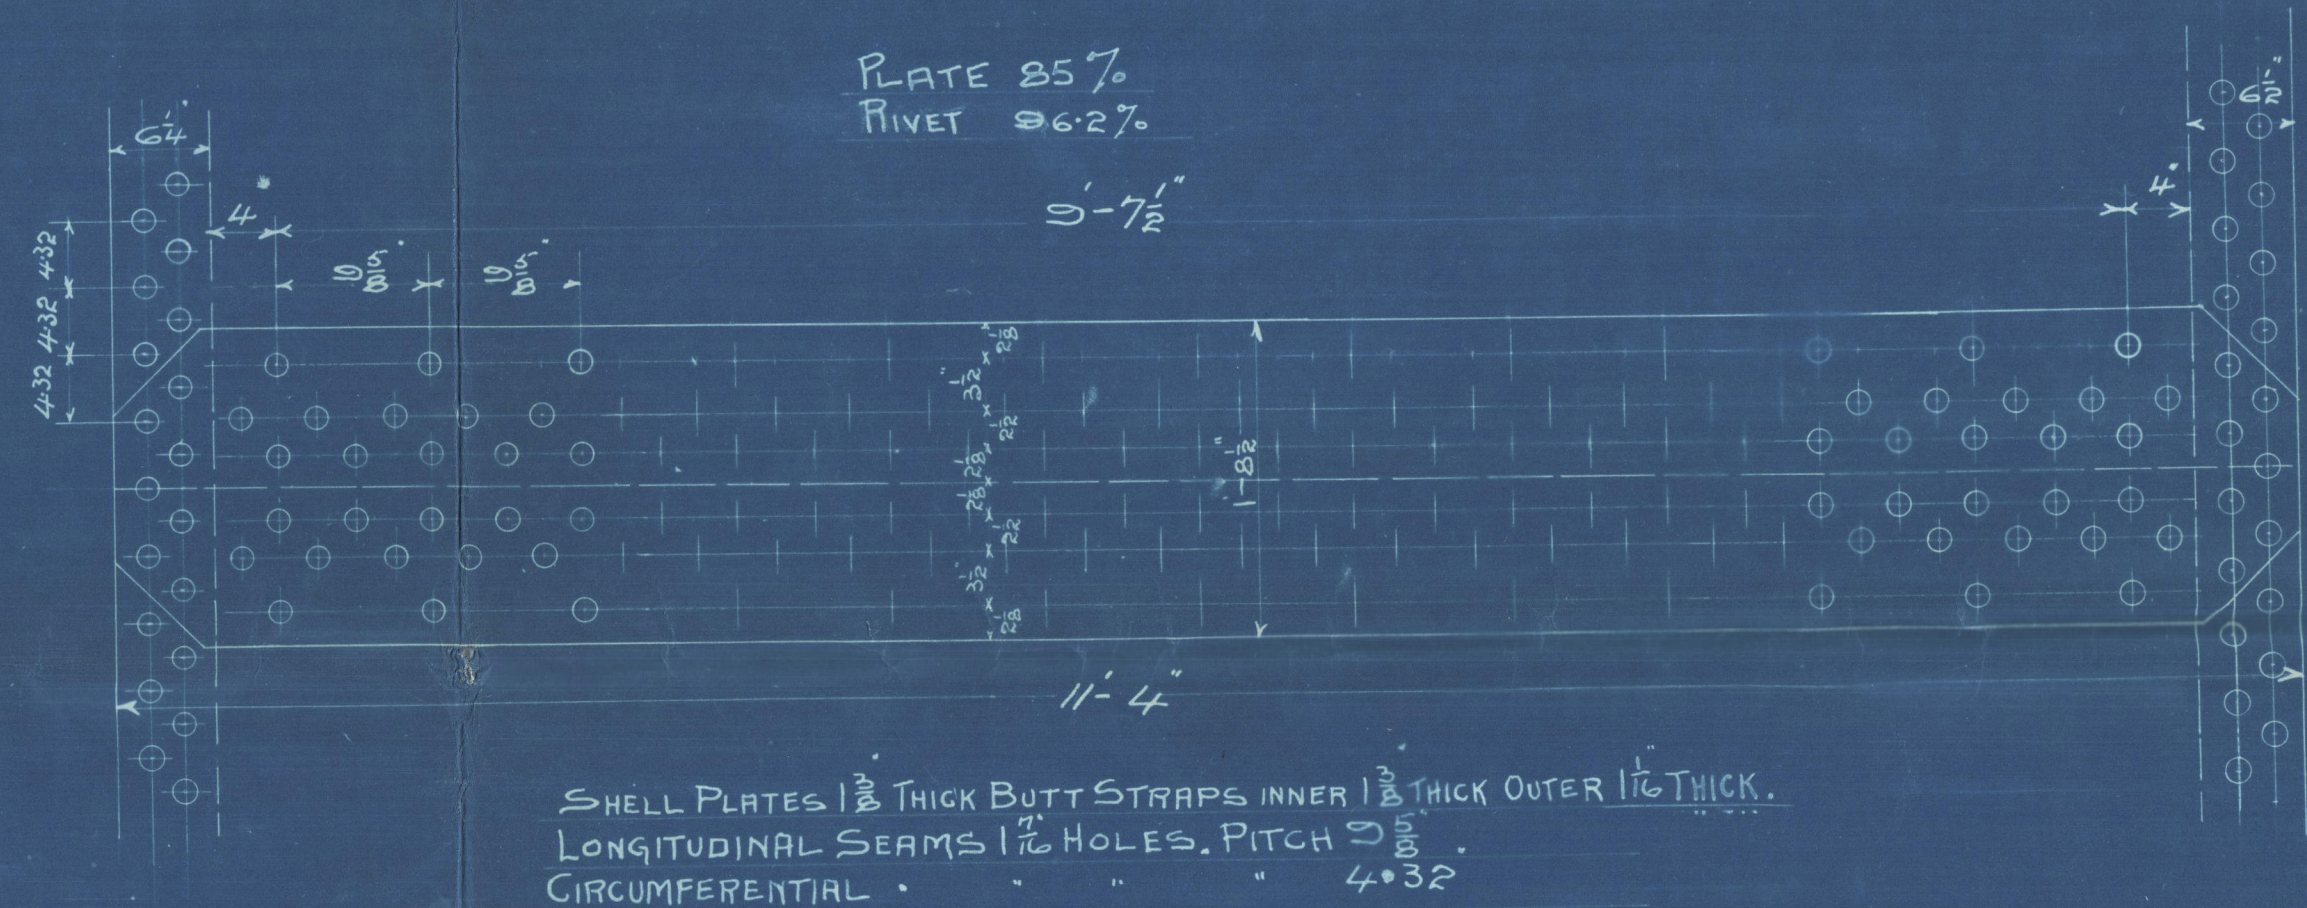 PLATE 85%
RIVET 96.2%
6 1/4"
6 1/2"
4"
9'-7 1/2"
4"
9 5/8"
9 5/8"
4.32
4.32
4.32
1 7/8
3 1/2"
2 1/2
2 1/8
2 1/8
2 1/2
3 1/2"
1'-8 1/2"
11'-4"
SHELL PLATES 1 3/8" THICK BUTT STRAPS INNER 1 3/8" THICK OUTER 1 1/16" THICK.
LONGITUDINAL SEAMS 1 7/16" HOLES. PITCH 9 5/8".
CIRCUMFERENTIAL " " " " 4.32